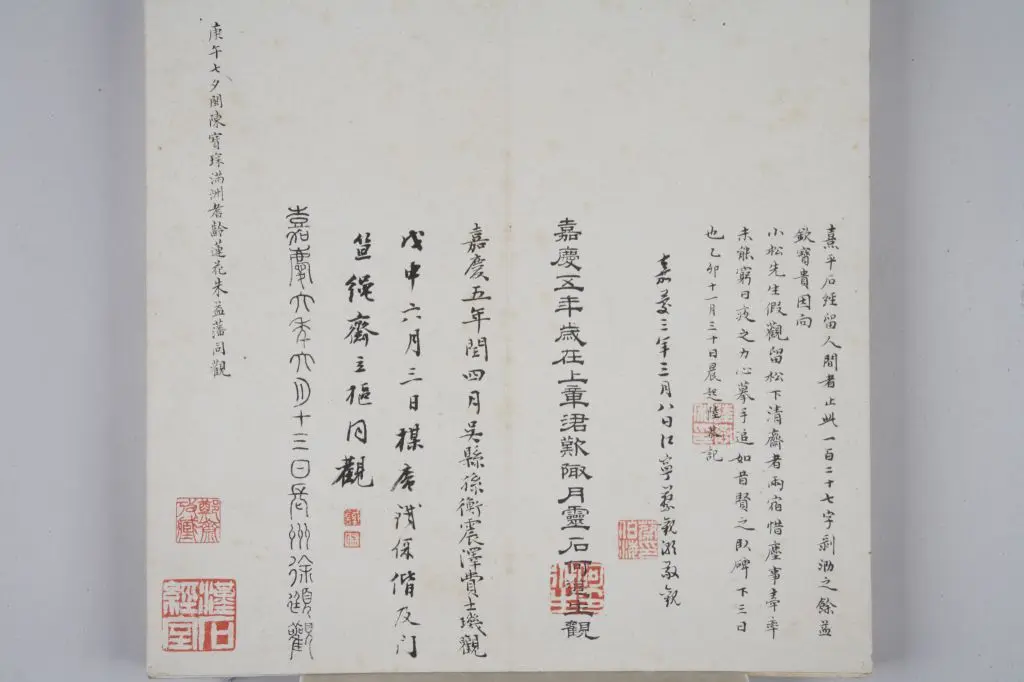 熹平石經留人間者止此一百二十七字剥泐之餘益
欽寶貴因向
小松先生假觀留松下清齋者兩宿惜塵事牽率
未能窮日夜之力心摹手追如昔賢之臥碑下三日
也乙卯十一月三十日晨起陸恭記
嘉慶三年三月八日江寧蔡觀游敬觀
嘉慶五年歲在上章涒歎陬月靈石何道生觀
嘉慶五年閏四月吳縣孫衡震澤費士璣觀
戊申六月三日楳庵涉保偕友汀
笠繩齋立樞同觀
嘉慶六年六月十三日長州徐頲觀
庚午七夕閩陳寶琛滿洲耆齡蓮花朱益藩同觀
漢石
經室